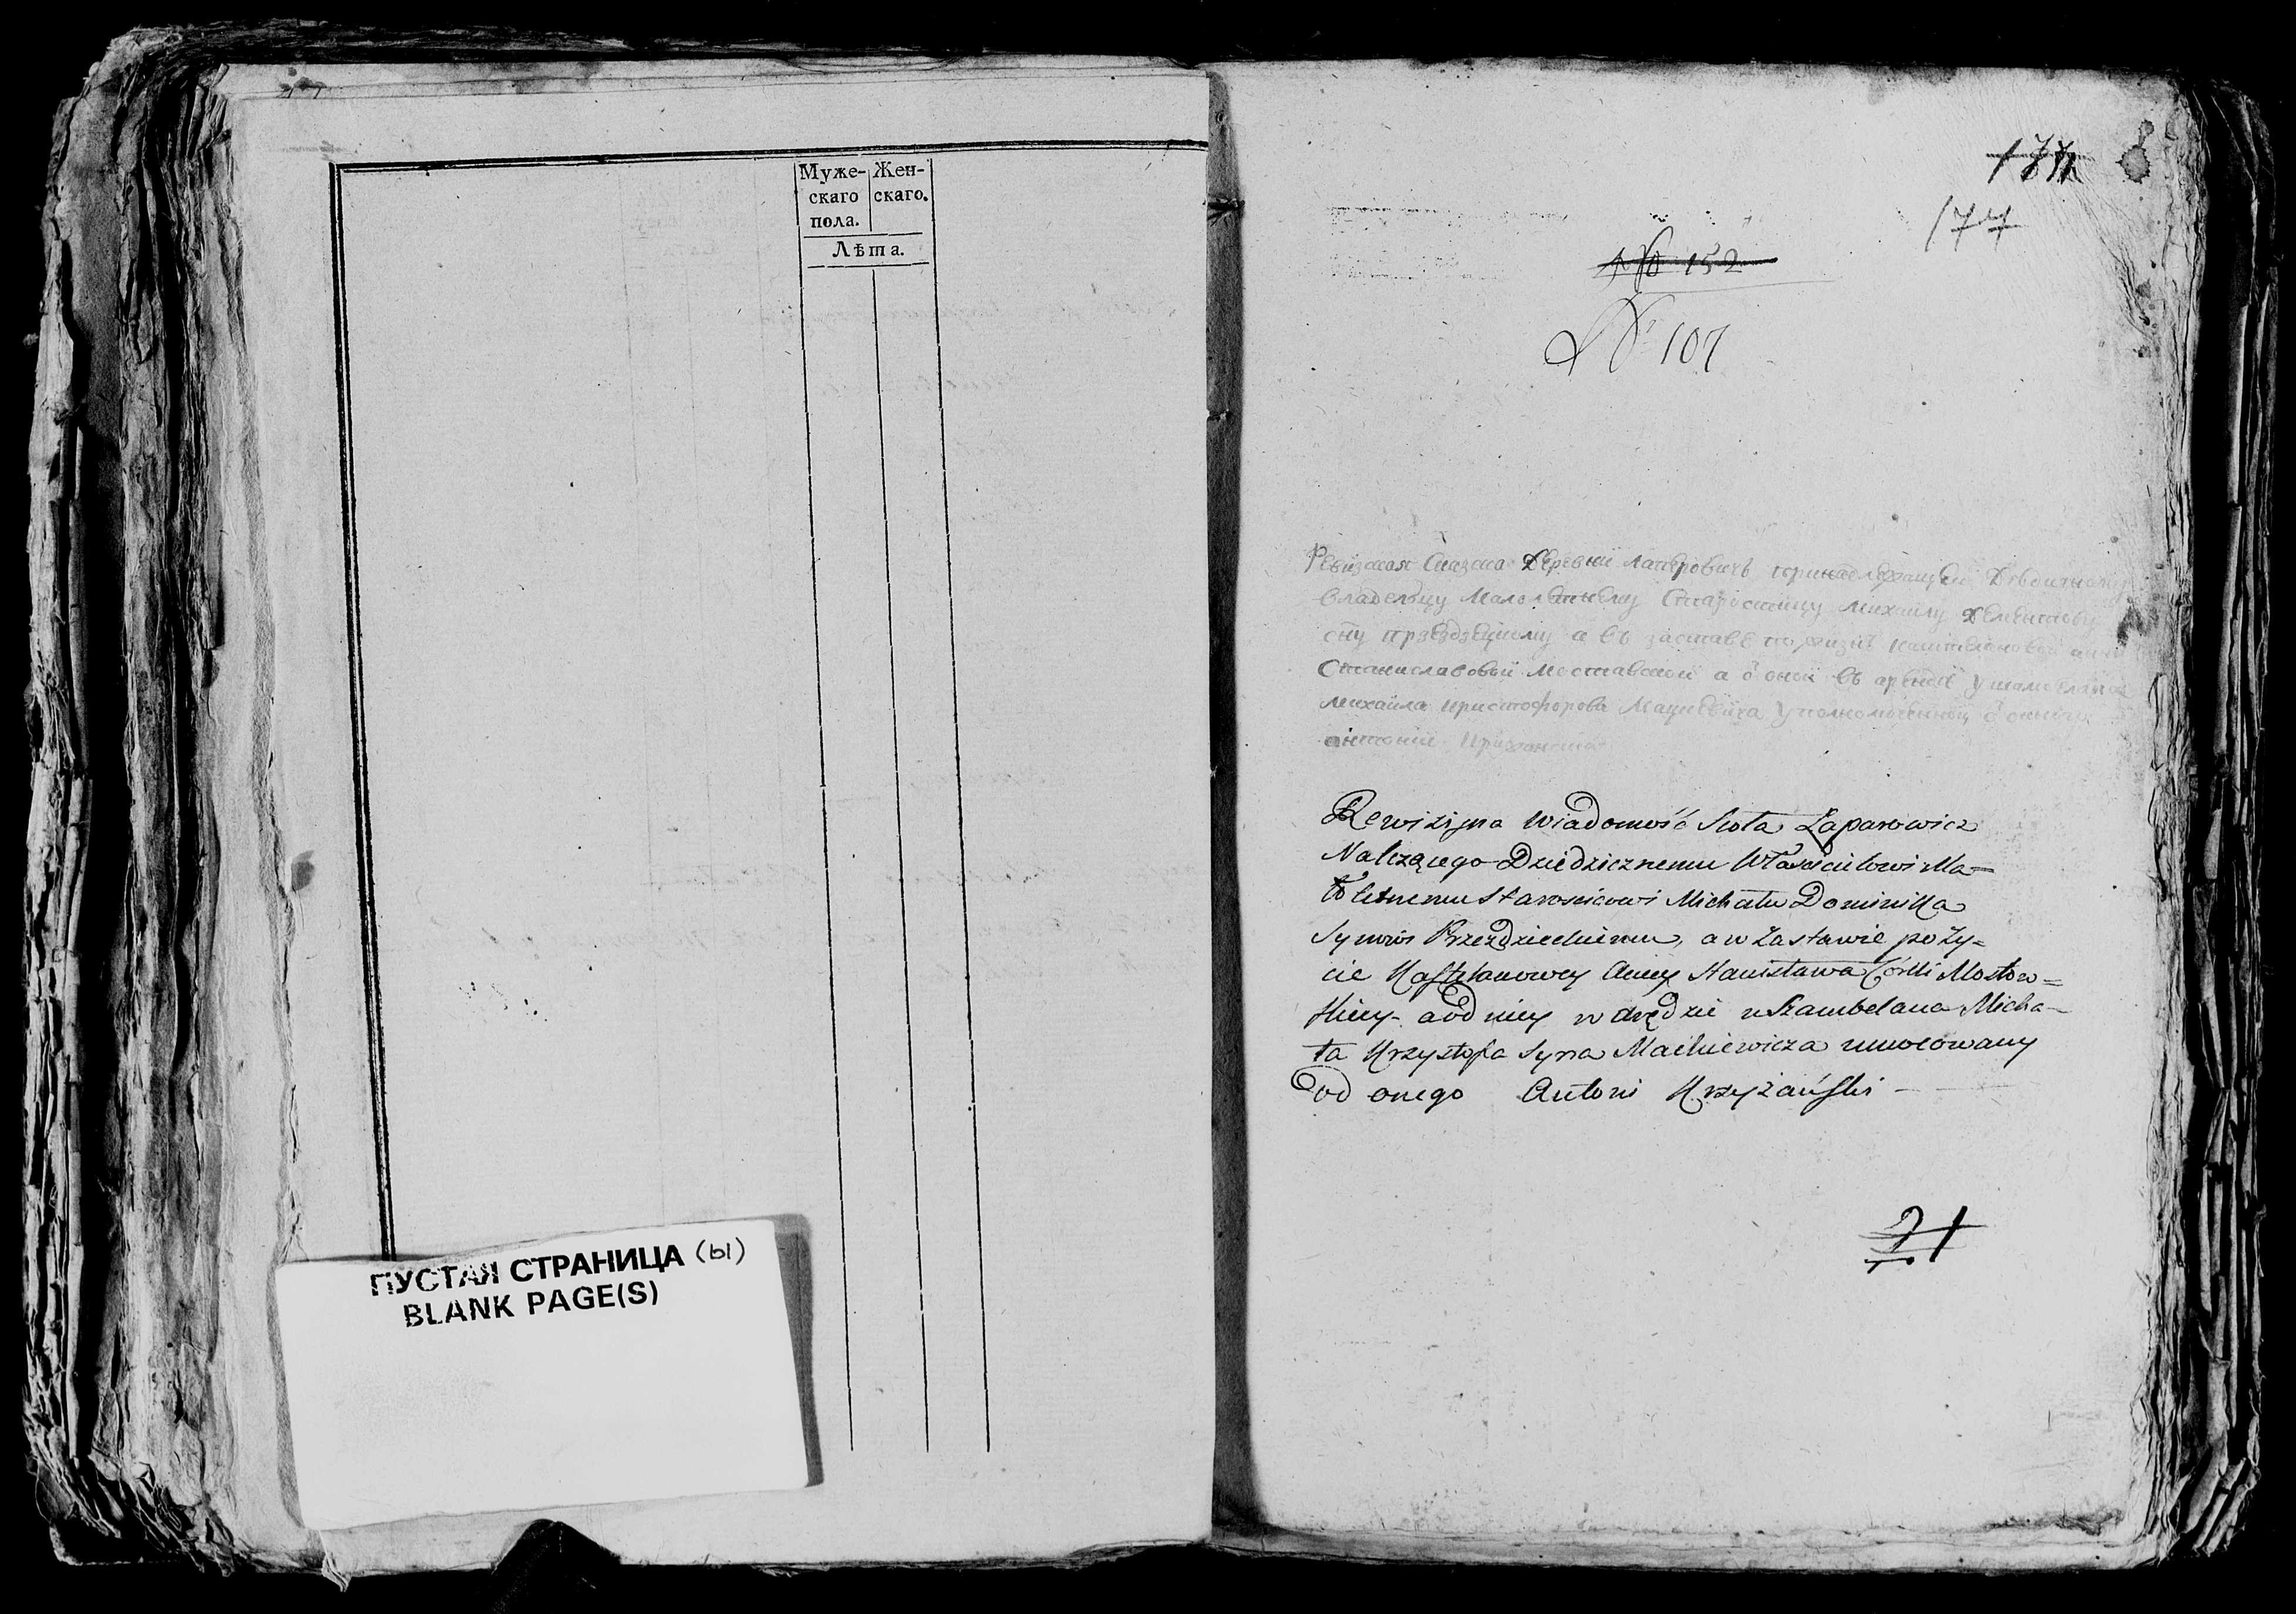 Муже- Жен-
скаго скаго.
пола.
Лѣта.
ПУСТАЯ СТРАНИЦА (ы)
BLANK PAGE(S)
177
№ 152
№ 107
Ревизская Сказка Деревни Лапоровичь принадлежащей Дедычному
владельцу Малолетнему Старостицу Михаилу
сну Пржездзецкому а въ заставе по жизнь
Станиславовой Моставской а о оной въ аренде У
Михаила Криштофорова Мацкевича Уполномоченный о
антоний
Rewizijna Wiadomość Sioła Łaparowicz
Należącego Dziedzicznemu Właścicielowi Ma=
łoletnemu Starościcowi Michału Dominika
Synowi Przezdzieckiemu, a w Zastawie po Ży=
cie Kasztelanowey Anny Stanisława Córki Mostow=
skiey a od niey w arędzie u Szambelana Micha-
ła Krzysztofa Syna Mackiewicza umocowany
od onego Antoni Krzyżański
21